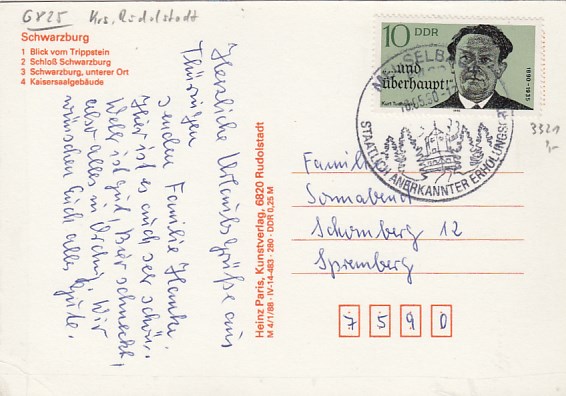 6825 Krs. Rudolstadt
Schwarzburg
1 Blick vom Trippstein
2 Schloß Schwarzburg
3 Schwarzburg, unterer Ort
4 Kaisersaalgebäude
Herzliche Urlaubsgrüße aus
Thüringen
senden Familie
Hier ist es auch sehr schön.
ist gut, Bier schmeckt,
also alles in Ordng. Wir
wünschen Euch alles Gute.
Heinz Paris, Kunstverlag, 6820 Rudolstadt
M 4/1/88 · IV-14-483 · 280 · DDR 0,25 M
10 DDR
und
überhaupt!
1890-1935
STAATLICH ANERKANNTER ERHOLUNGSORT
3321
Familie
Sonnabend
Schomberg 12
Spremberg
7590